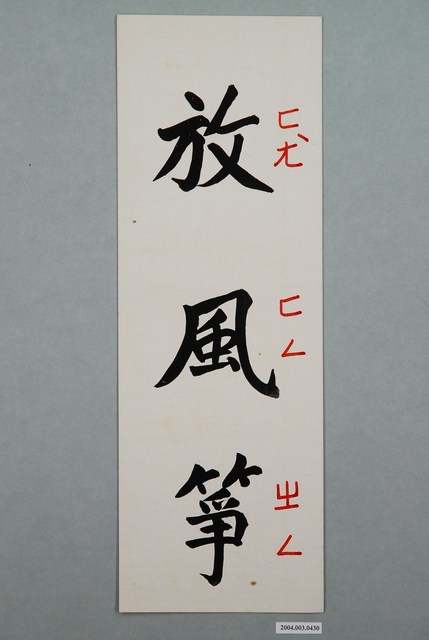 放風箏
ㄈㄤˋ
ㄈㄥ
ㄓㄥ
2004.003.0430